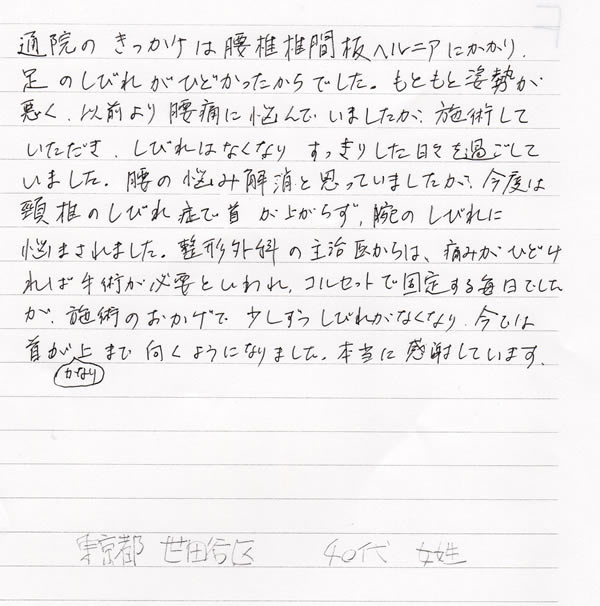 通院のきっかけは腰椎椎間板ヘルニアにかかり、
足のしびれがひどかったからでした。もともと姿勢が
悪く、以前より腰痛に悩んでいましたが、施術して
いただき、しびれはなくなり すっきりした日々を過ごして
いました。腰の悩み解消と思っていましたが、今度は
頸椎のしびれ症で首が上がらず、腕のしびれに
悩まされました。整形外科の主治医からは、痛みがひどけ
れば手術が必要といわれ、コルセットで固定する毎日でした
が、施術のおかげで少しずつしびれがなくなり、今では
首がかなり上まで向くようになりました。本当に感謝しています。
東京都 世田谷区 40代 女性